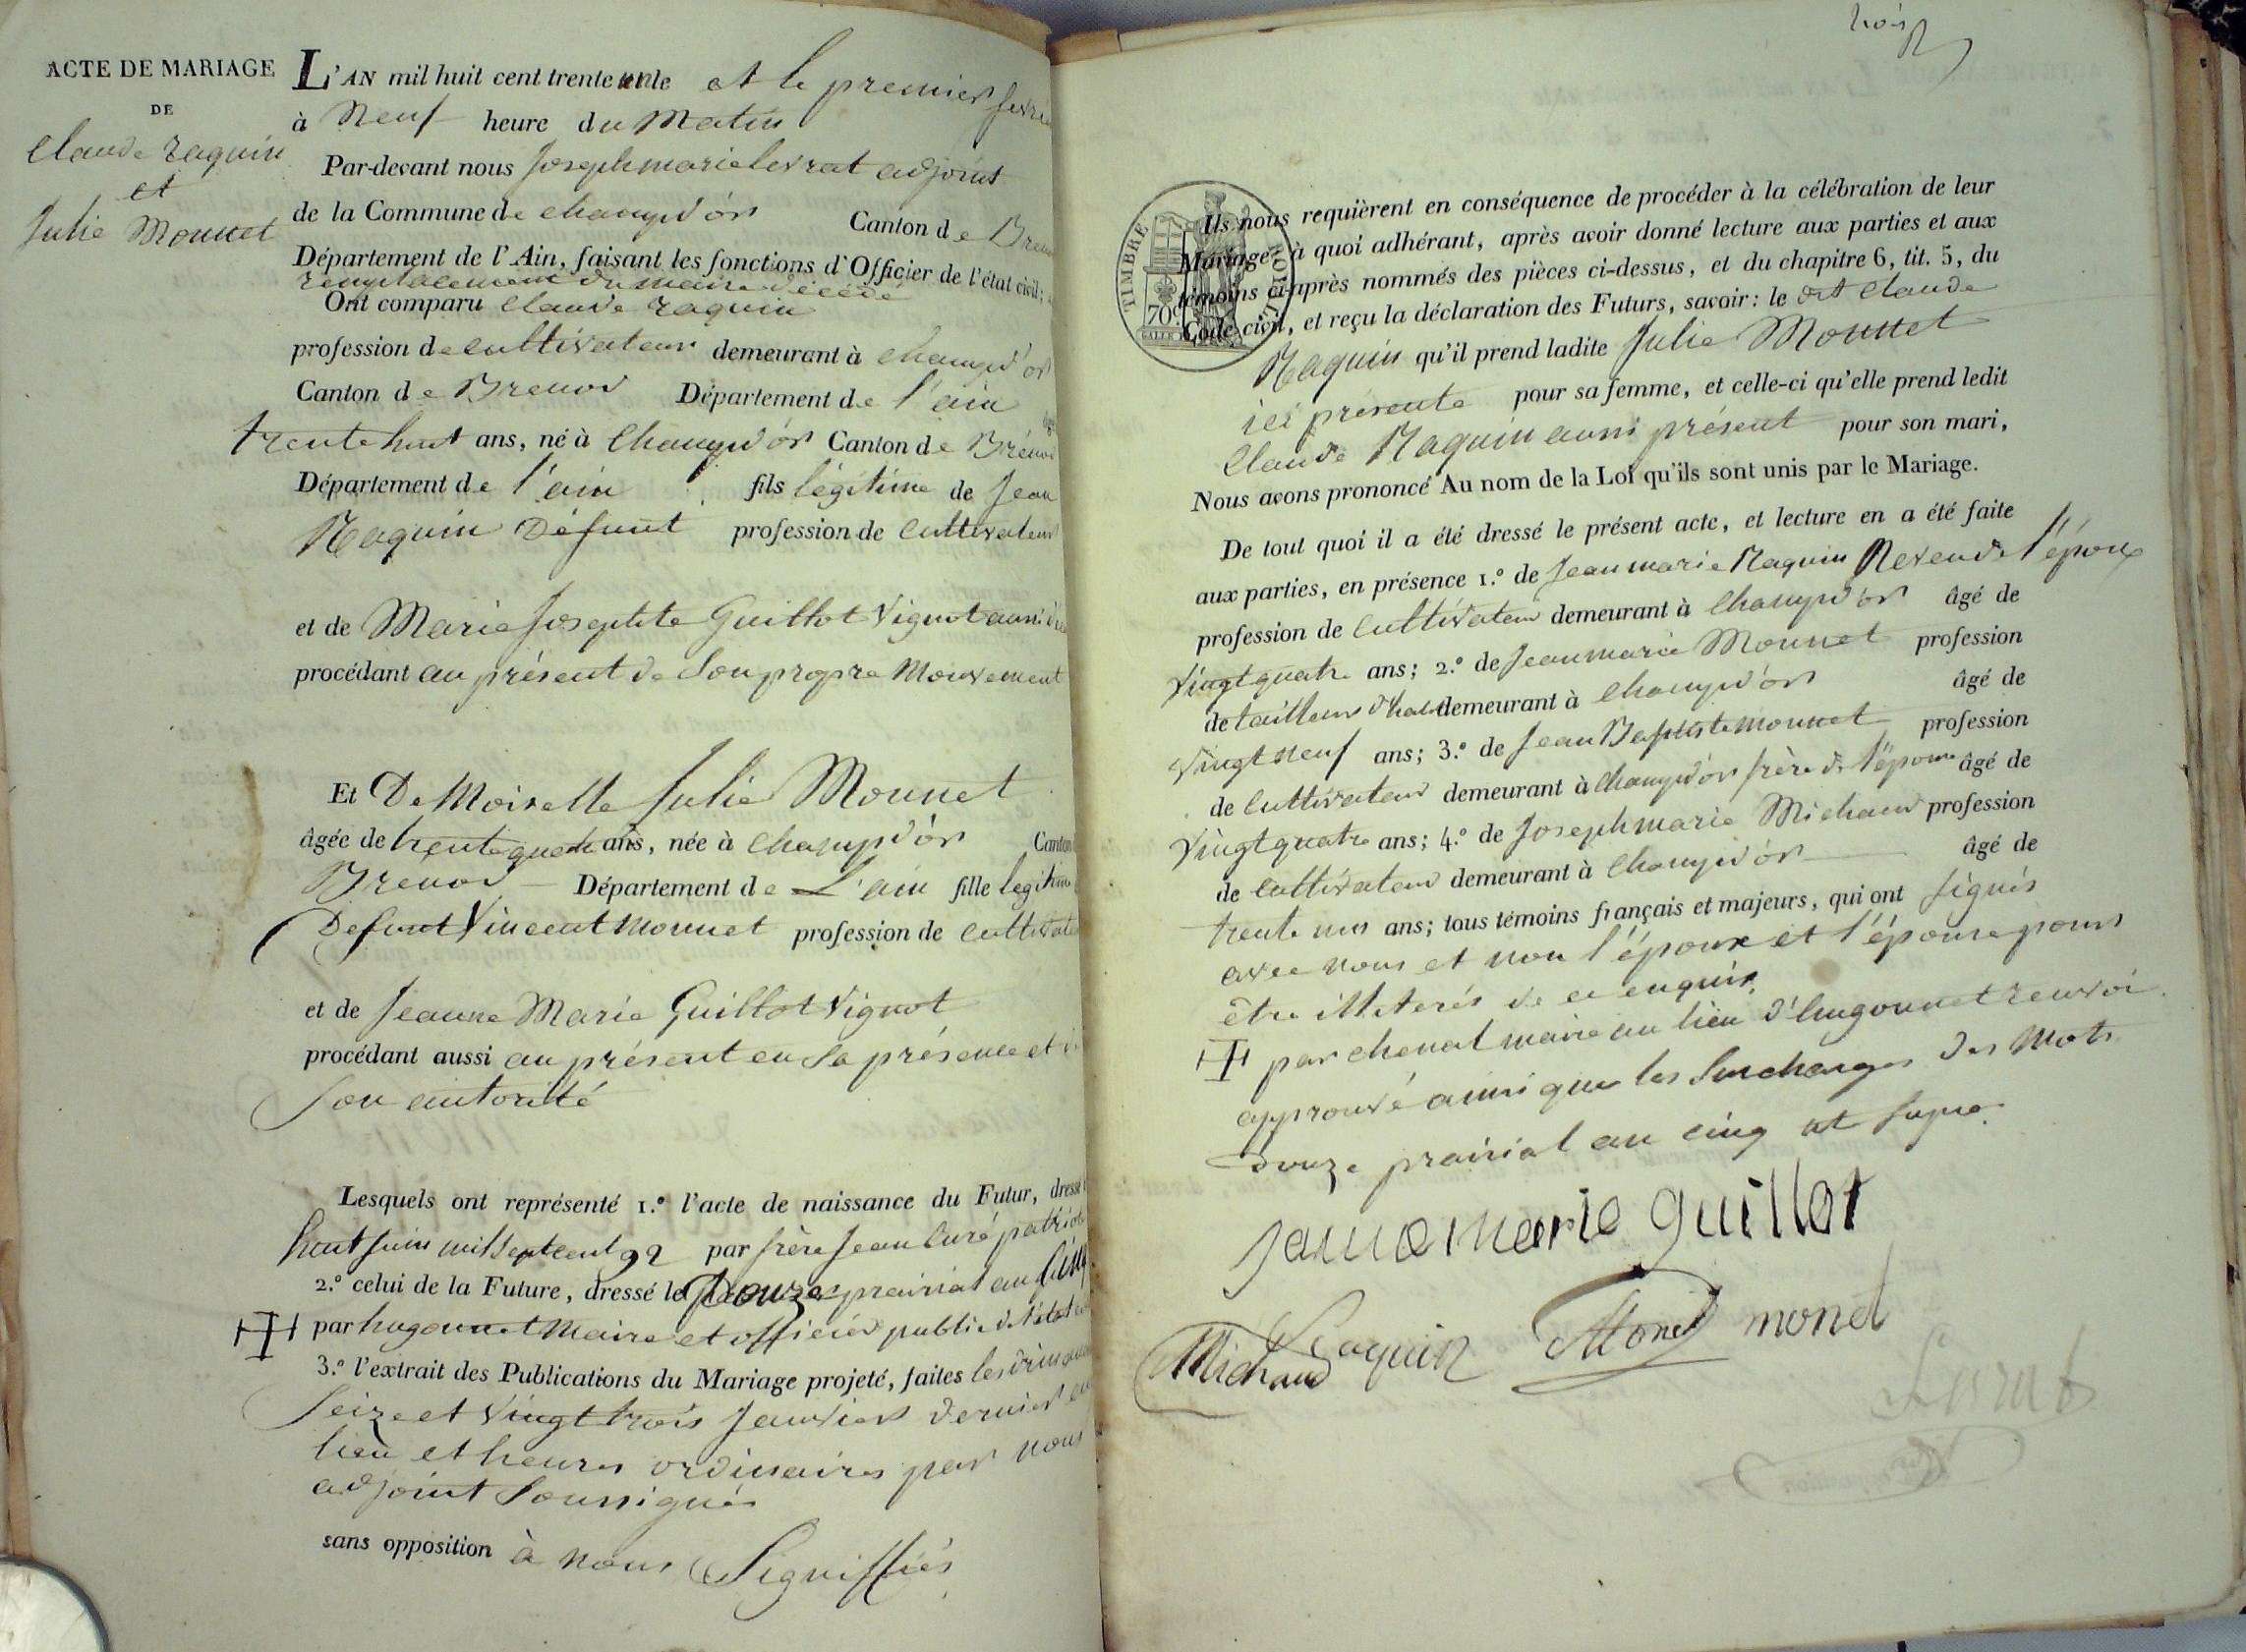 ACTE DE MARIAGE
DE
Claude raquin
et
Julie Monnet
L'AN mil huit cent trente et le premier fevrie
à Neuf heure du Matin
Par-devant nous Joseph marie levrat adjoint
de la Commune de champd'or Canton de Bren
Département de l'Ain, faisant les fonctions d'Officier de l'état civil;
remplacement du maire décédé
Ont comparu Claude raquin
profession de cultivateur demeurant à champd'or
Canton de Brenod Département de l'ain
trente huit ans, né à Champd'or Canton de Bréno
Département de l'ain fils légitime de Jean
Raquin Défunt profession de cultivateur
et de Marie Josephte Guillot Vignot aussi
procédant au présent de Son propre Mouvement
Et DeMoiselle Julie Monnet
âgée de trente quatre ans, née à Champd'or Canton
Brenod Département de L'ain fille legitime
Defunt Vincent Monnet profession de cultivate
et de Jeanne Marie Guillot Vignot
procédant aussi au présent en Sa présence et
Son autorité
Lesquels ont représenté 1.º l'acte de naissance du Futur, dressé
huit juin mil Sept cent 92 par frère Jean Curé patriot
2.º celui de la Future, dressé le Douze prairial an Cinq
par hugonnet Maire et officier public de l'état
3.º l'extrait des Publications du Mariage projeté, faites les dimanch
Seize et Vingt trois Janvier dernier au
lieu et heures ordinaires par nous
adjoint Soussignés
sans opposition à nous Signiffiés
trois
TIMBRE ROYAL
70c
Ils nous requièrent en conséquence de procéder à la célébration de leur
Mariage, à quoi adhérant, après avoir donné lecture aux parties et aux
témoins ci-après nommés des pièces ci-dessus, et du chapitre 6, tit. 5, du
Code civil, et reçu la déclaration des Futurs, savoir: le dit Claude
Raquin qu'il prend ladite Julie Monnet
ici présente pour sa femme, et celle-ci qu'elle prend ledit
Claude Raquin aussi présent pour son mari,
Nous avons prononcé Au nom de la Loi qu'ils sont unis par le Mariage.
De tout quoi il a été dressé le présent acte, et lecture en a été faite
aux parties, en présence 1.º de Jean marie Raquin Neveu de l'époux
profession de Cultivateur demeurant à Champd'or âgé de
Vingt quatre ans; 2.º de Jean marie Monnet profession
de tailleur d'habit demeurant à Champd'or âgé de
Vingt neuf ans; 3.º de Jean Baptiste monnet profession
de Cultivateur demeurant à Champd'or frère de l'épouse âgé de
Vingt quatre ans; 4.º de Joseph marie Michaud profession
de Cultivateur demeurant à Champd'or âgé de
trente un ans; tous témoins français et majeurs, qui ont signés
avec nous et non l'époux et l'épouse pour
être illeterés de ce enquis.
par chenal maire au lieu d'hugonnet renvoi
approuvé ainsi que les Surcharges des Mots
Douze prairial an cinq ut supra.
janne marie guillot
Michaud Raquin Monet monet
Levrat